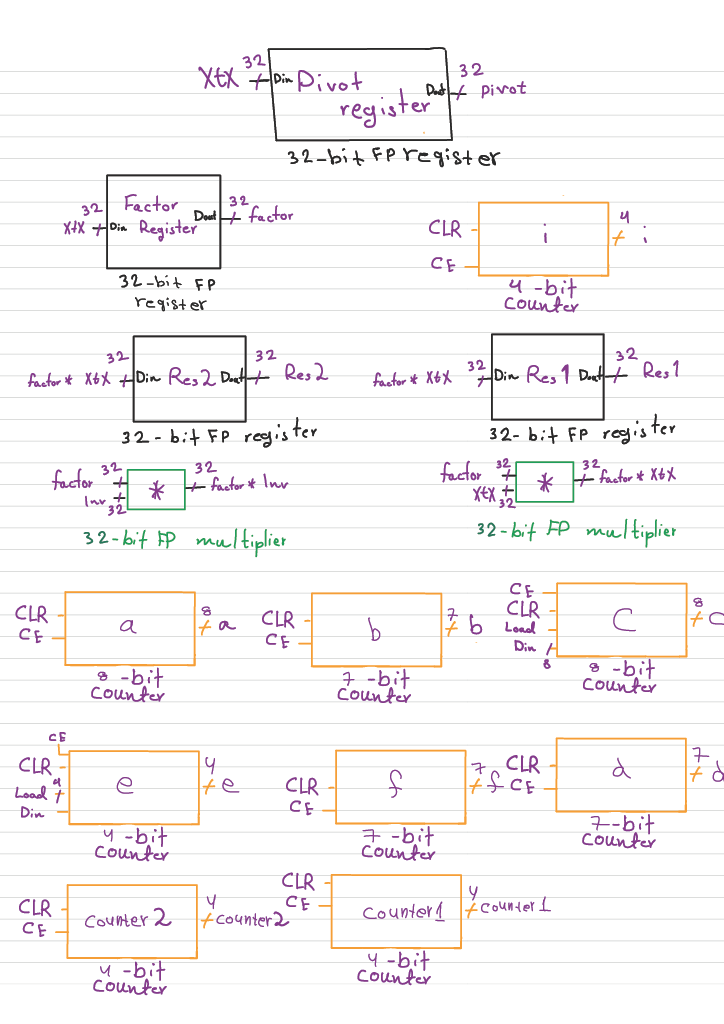 32
32
XtX Din Pivot register Dout pivot
32-bit FP register
32
Factor
32
XtX Din Register Dout factor
32-bit FP
register
CLR
CE
i
4
i
4-bit
Counter
32
32
factor * XtX Din Res2 Dout Res2
32-bit FP register
32
32
factor * XtX Din Res1 Dout Res1
32-bit FP register
factor 32
Inv 32
*
32
factor * Inv
32-bit FP multiplier
factor 32
XtX 32
*
32
factor * XtX
32-bit FP multiplier
CLR
CE
a
8
a
8-bit
Counter
CLR
CE
b
7
b
7-bit
Counter
CE
CLR
Load
Din
8
C
8
C
8-bit
Counter
CE
CLR
Load 4
Din
e
4
e
4-bit
Counter
CLR
CE
f
7
f
7-bit
Counter
CLR
CE
d
7
d
7-bit
Counter
CLR
CE
Counter2
4
Counter2
4-bit
Counter
CLR
CE
Counter1
4
Counter1
4-bit
Counter